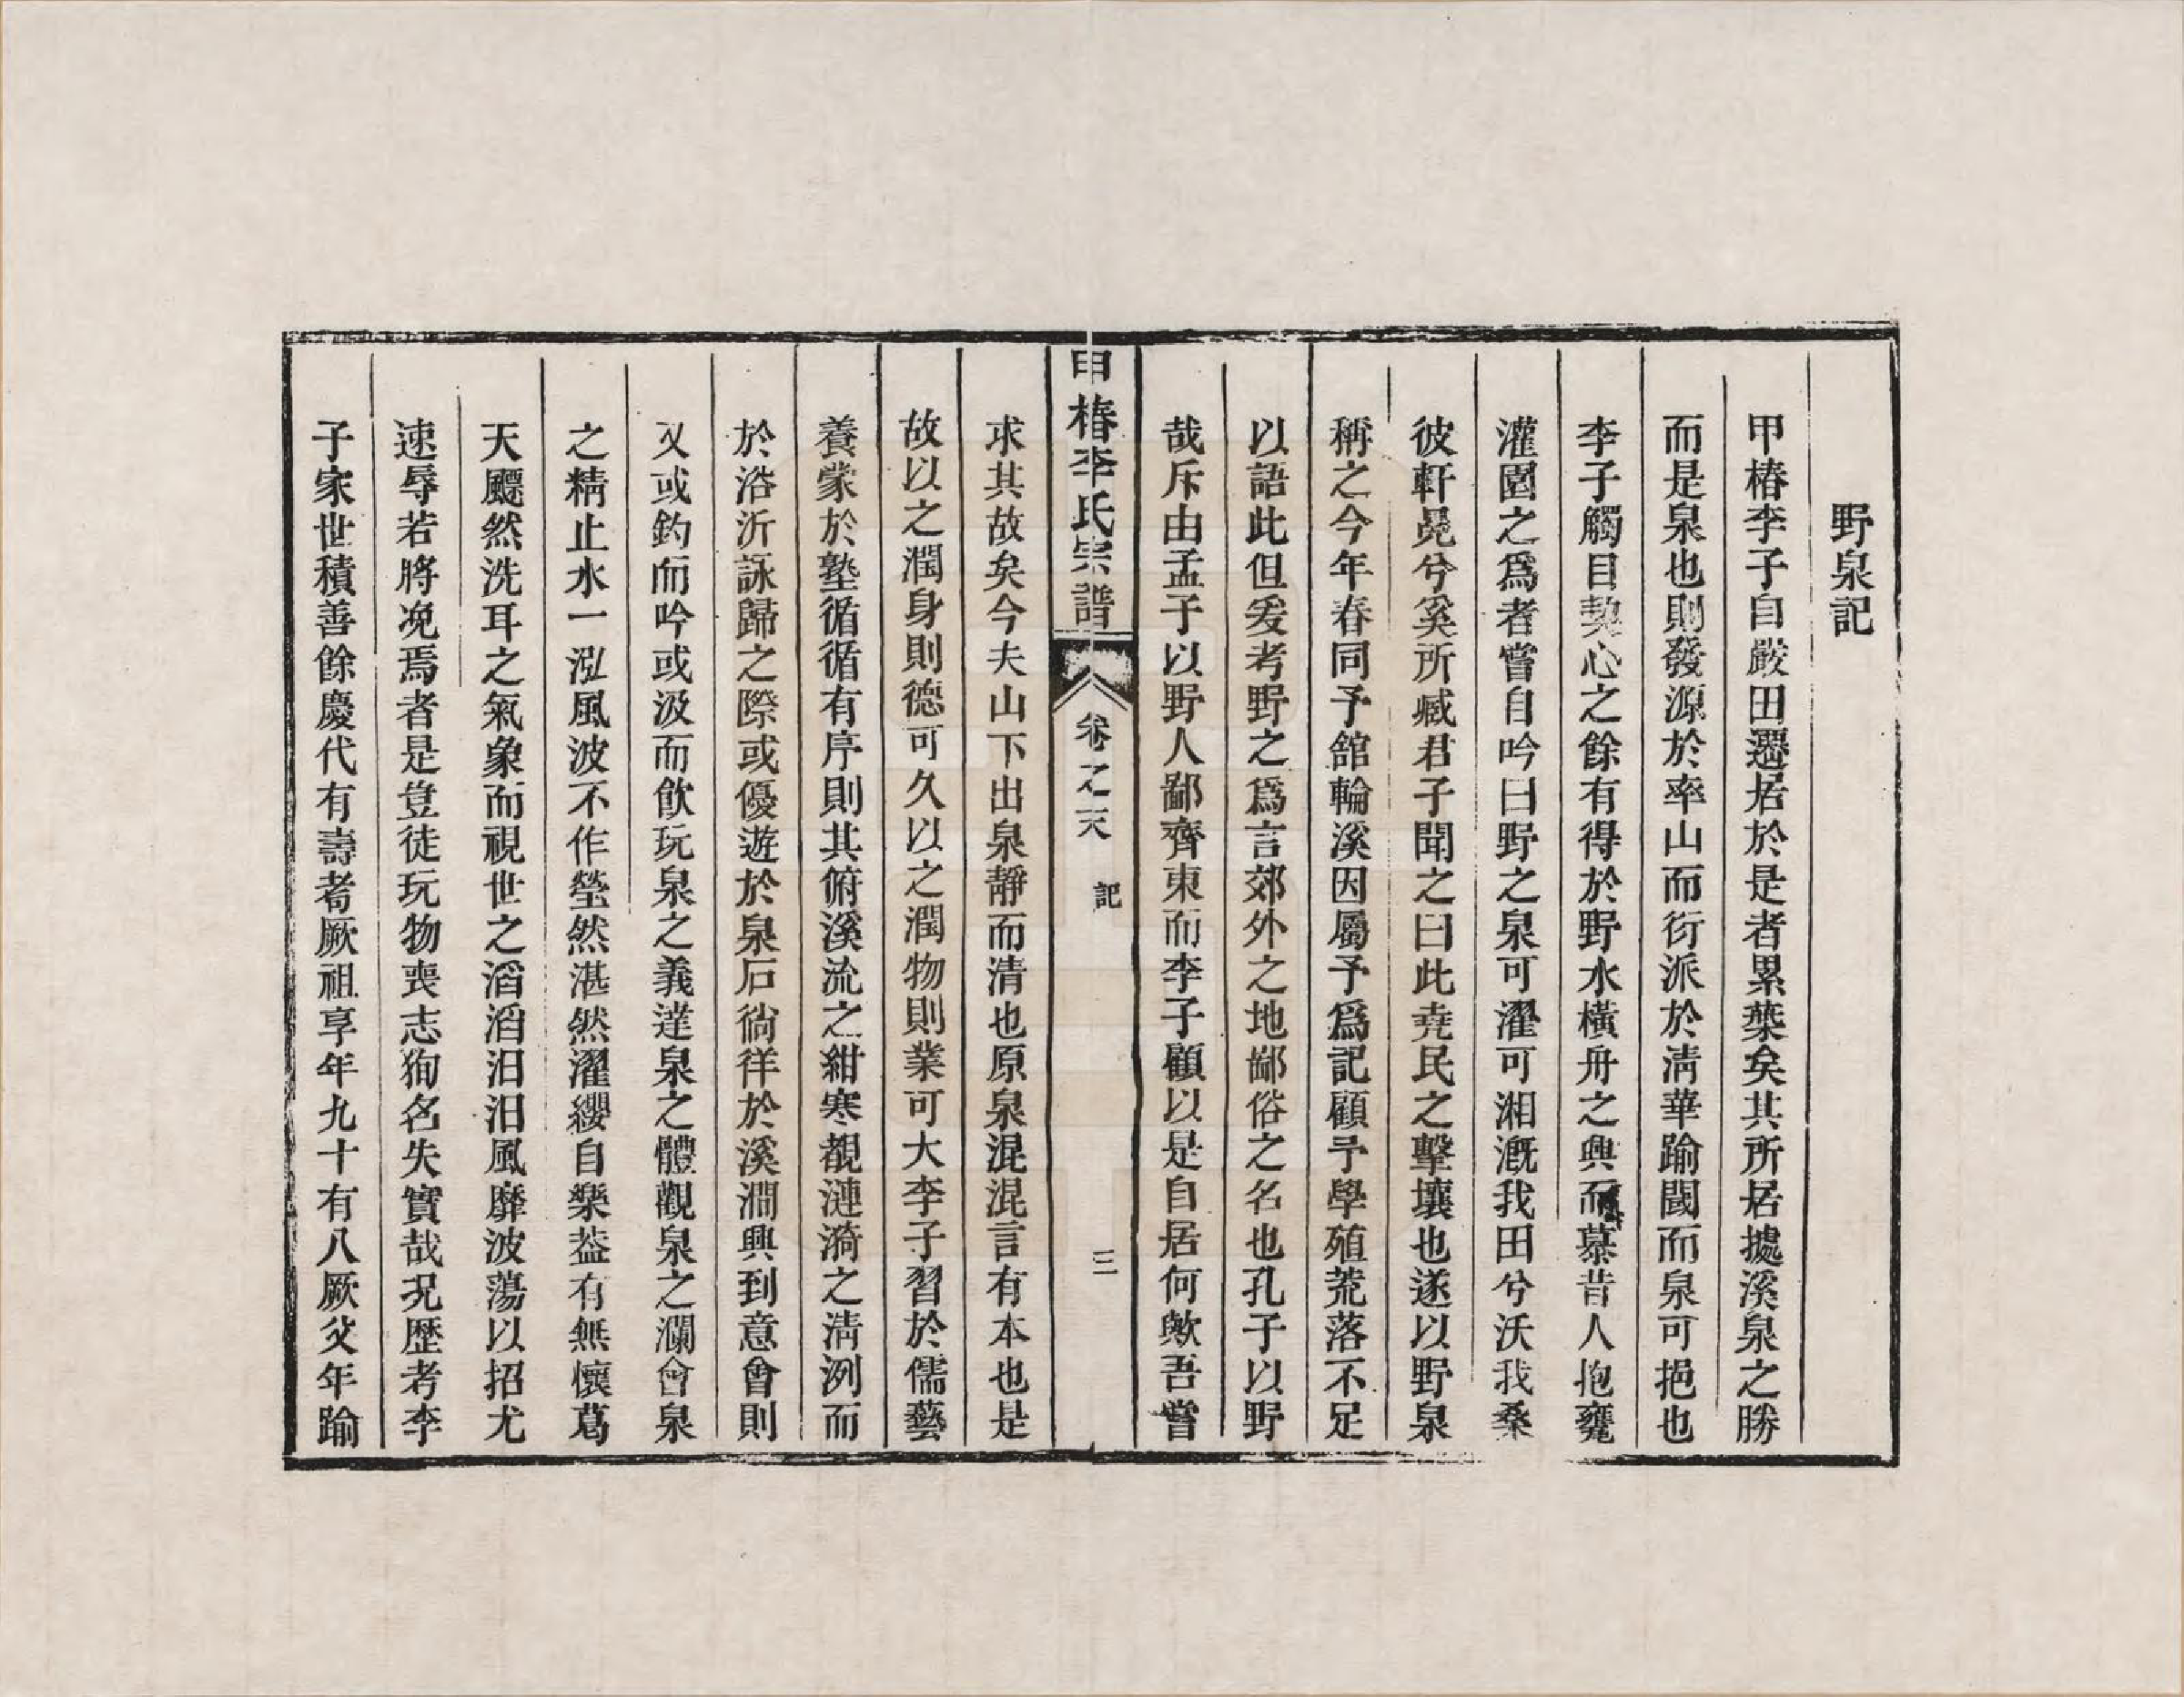 野泉記
甲椿李子自嚴田遷居於是者累葉矣其所居據溪泉之勝
而是泉也則發源於率山而衍派於淸華踰閫而泉可挹也
李子觸目契心之餘有得於野水橫舟之興而慕昔人抱甕
灌園之爲者嘗自吟曰野之泉可濯可湘漑我田兮沃我桑
彼軒冕兮奚所臧君子聞之曰此堯民之擊壤也遂以野泉
稱之今年春同予館輪溪因屬予爲記顧予學殖荒落不足
以語此但爰考野之爲言郊外之地鄙俗之名也孔子以野
哉斥由孟子以野人鄙齊東而李子顧以是自居何歟吾嘗
甲椿李氏宗譜
卷之天
記
三
求其故矣今夫山下出泉靜而清也原泉混混言有本也是
故以之潤身則德可久以之潤物則業可大李子習於儒藝
養蒙於塾循循有序則其俯溪流之紺寒覩漣漪之淸洌而
於浴沂詠歸之際或優遊於泉石徜徉於溪澗興到意會則
又或釣而吟或汲而飮玩泉之義達泉之體觀泉之瀾會泉
之精止水一泓風波不作瑩然湛然濯纓自樂葢有無懷葛
天飃然洗耳之氣象而視世之滔滔汨汨風靡波蕩以招尤
速辱若將凂焉者是豈徒玩物喪志狥名失實哉况歷考李
子家世積善餘慶代有壽耈厥祖享年九十有八厥父年踰